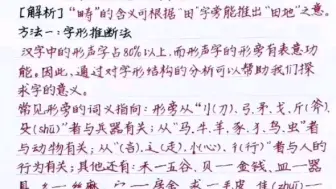 [解析]“畴”的含义可根据“田”字旁能推出“田地”之意。
方法一:字形推断法
汉字中的形声字占80%以上,而形声字的形旁有表意功
能。因此,通过对字形结构的分析可以帮助我们探
求字的意义。
常见形旁的词义指向:形旁从“刂(刀)、弓、矛、戈、斤(斧)、
殳(shū)”者与兵器有关;从“马、牛、羊、豕、犭、鸟、虫”者
与动物有关;从“讠(言)、辶(走)、忄(心)、彳(行)”者与人的
行为有关;其他还有:禾—五谷、贝—金钱、皿—器